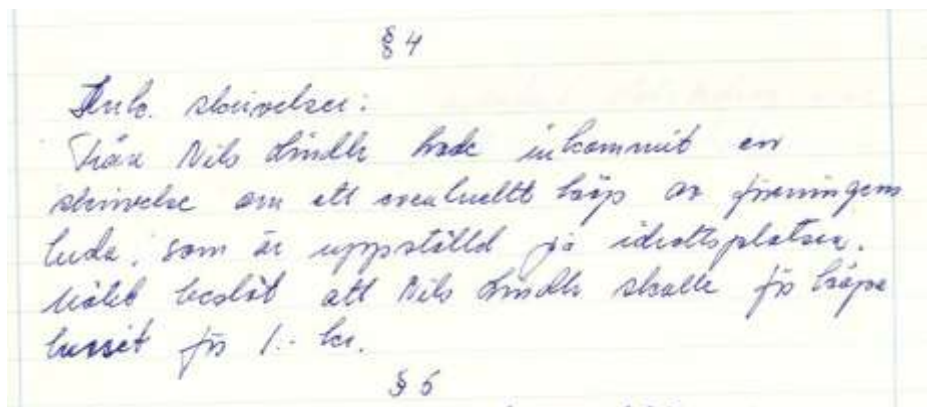 § 4
Ink. skrivelser:
Från Nils Lindh hade inkommit en
skrivelse om ett eventuellt köp av föreningens
luda, som är uppställd på idrottsplatsen.
Mötet beslöt att Nils Lindh skulle få köpa
huset för 1:- kr.
§ 5